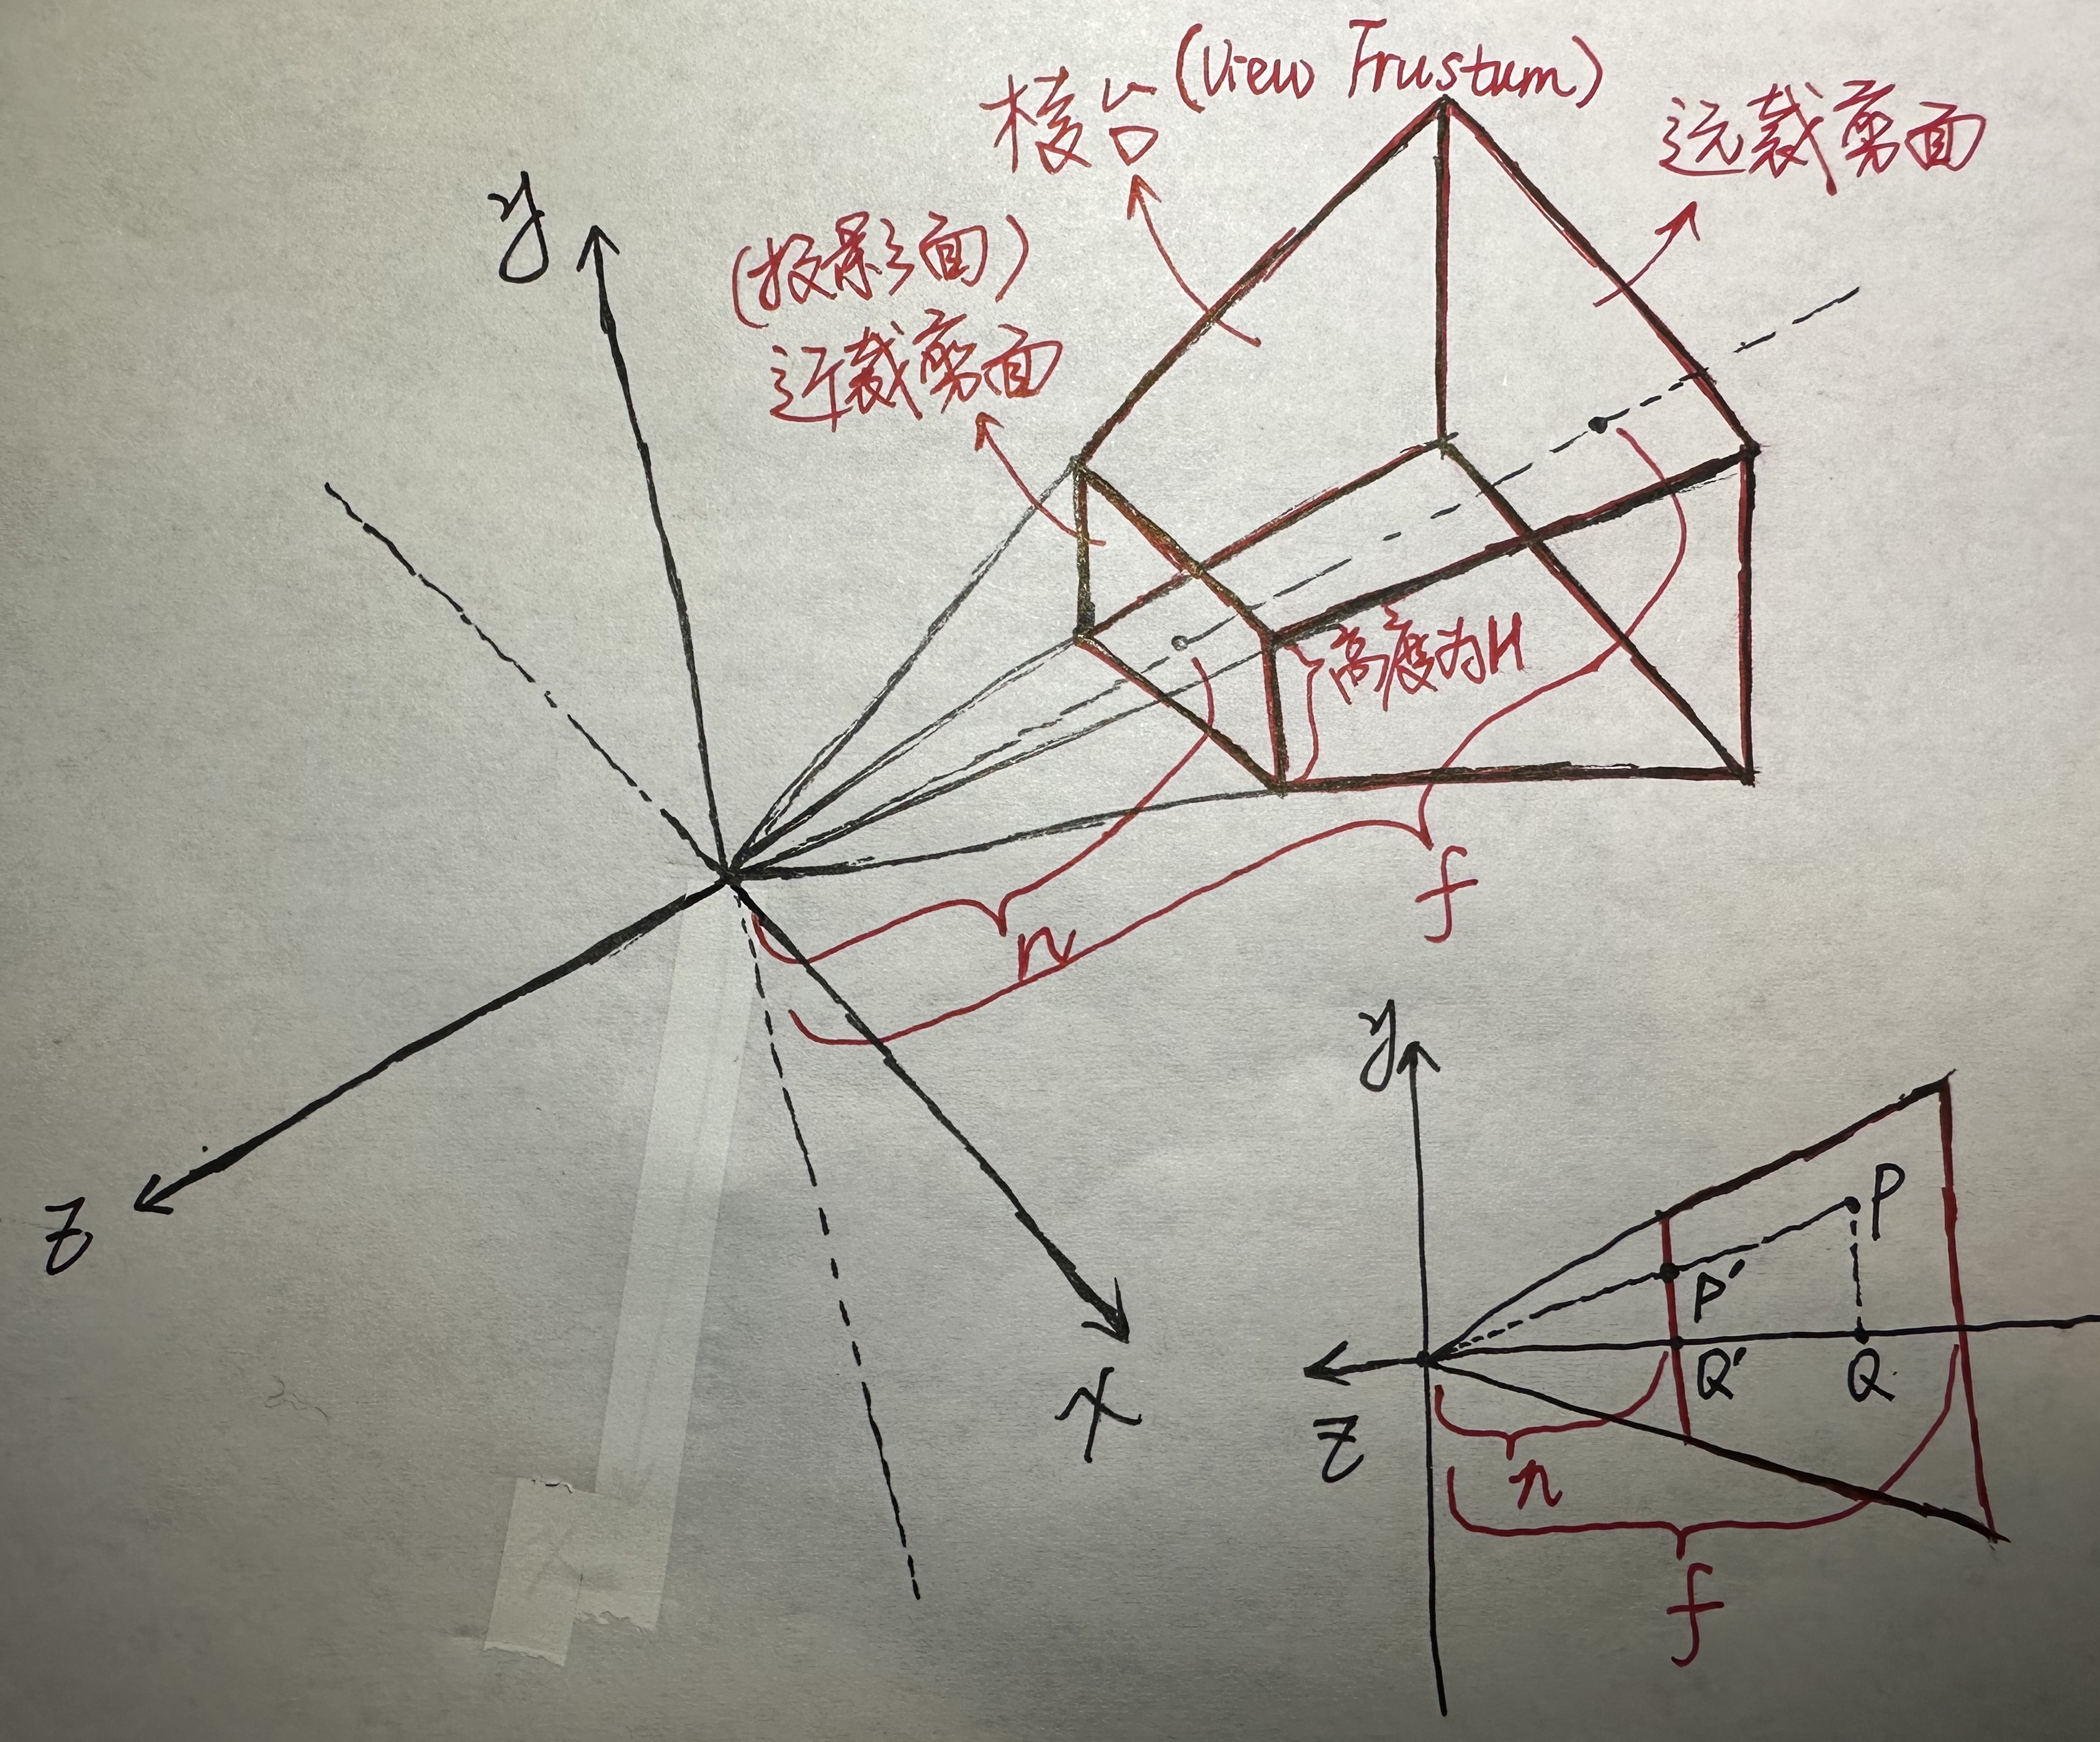 棱台(View Frustum)
远裁剪面
(投影面)
近裁剪面
y
高度为H
f
n
z
x
y
P
P'
Q'
Q
z
n
f